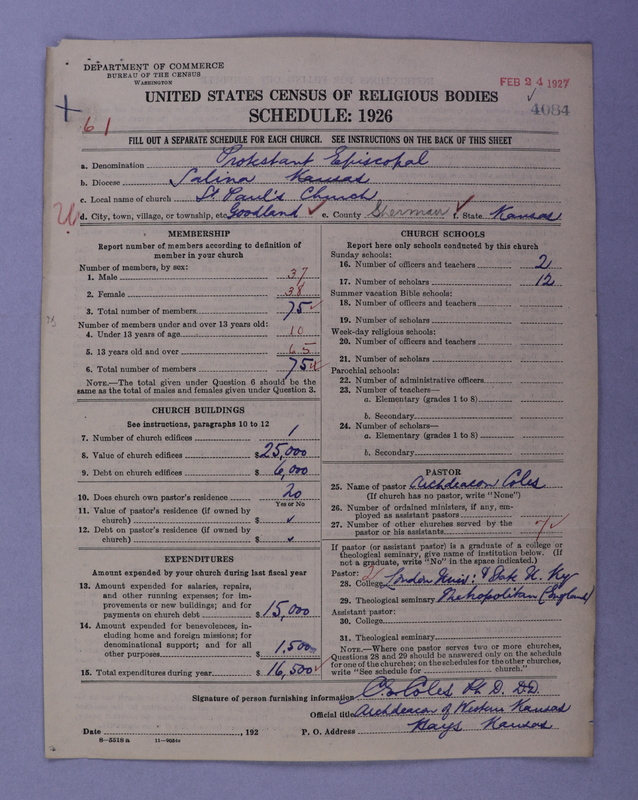 DEPARTMENT OF COMMERCE
BUREAU OF THE CENSUS
WASHINGTON
FEB 24 1927
UNITED STATES CENSUS OF RELIGIOUS BODIES
4084
SCHEDULE: 1926
61
FILL OUT A SEPARATE SCHEDULE FOR EACH CHURCH. SEE INSTRUCTIONS ON THE BACK OF THIS SHEET
a. Denomination Protestant Episcopal
b. Diocese Salina Kansas
c. Local name of church St Paul's Church
d. City, town, village, or township, etc. Goodland e. County Sherman f. State Kansas
MEMBERSHIP
Report number of members according to definition of
member in your church
Number of members, by sex:
1. Male 37
2. Female 38
3. Total number of members 75
Number of members under and over 13 years old:
4. Under 13 years of age 10
5. 13 years old and over 65
6. Total number of members 75
NOTE.—The total given under Question 6 should be the
same as the total of males and females given under Question 3.
CHURCH BUILDINGS
See instructions, paragraphs 10 to 12
7. Number of church edifices 1
8. Value of church edifices $25,000
9. Debt on church edifices $6,000
10. Does church own pastor's residence no
Yes or No
11. Value of pastor's residence (if owned by
church) $
12. Debt on pastor's residence (if owned by
church) $
EXPENDITURES
Amount expended by your church during last fiscal year
13. Amount expended for salaries, repairs,
and other running expenses; for im-
provements or new buildings; and for
payments on church debt $15,000
14. Amount expended for benevolences, in-
cluding home and foreign missions; for
denominational support; and for all
other purposes $1,500
15. Total expenditures during year $16,500
CHURCH SCHOOLS
Report here only schools conducted by this church
Sunday schools:
16. Number of officers and teachers 2
17. Number of scholars 12
Summer vacation Bible schools:
18. Number of officers and teachers
19. Number of scholars
Week-day religious schools:
20. Number of officers and teachers
21. Number of scholars
Parochial schools:
22. Number of administrative officers
23. Number of teachers—
a. Elementary (grades 1 to 8)
b. Secondary
24. Number of scholars—
a. Elementary (grades 1 to 8)
b. Secondary
PASTOR
25. Name of pastor Archdeacon Coles
(If church has no pastor, write "None")
26. Number of ordained ministers, if any, em-
ployed as assistant pastors
27. Number of other churches served by the
pastor or his assistants 7
If pastor (or assistant pastor) is a graduate of a college or
theological seminary, give name of institution below. (If
not a graduate, write "No" in the space indicated.)
Pastor:
28. College London Univ: & U. Ky
29. Theological seminary Metropolitan (England)
Assistant pastor:
30. College
31. Theological seminary
NOTE.—Where one pastor serves two or more churches,
Questions 28 and 29 should be answered only on the schedule
for one of the churches; on the schedules for the other churches,
write "See schedule for church."
Signature of person furnishing information Coles Ph. D. D.D.
Official title Archdeacon of Western Kansas
Date , 192 P. O. Address Hays Kansas
8—5518 a